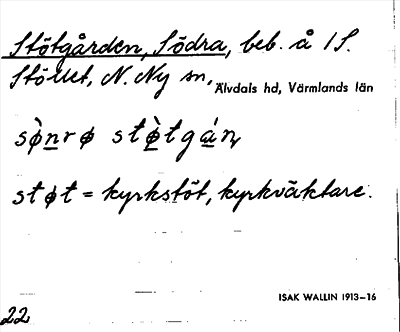 Stötgården, Södra, beb. å 1 S.
Stöllet, N. Ny sn, Älvdals hd, Värmlands län
sø̀nrø støtgán
støt = kyrkstöt, kyrkväktare.
ISAK WALLIN 1913–16
22